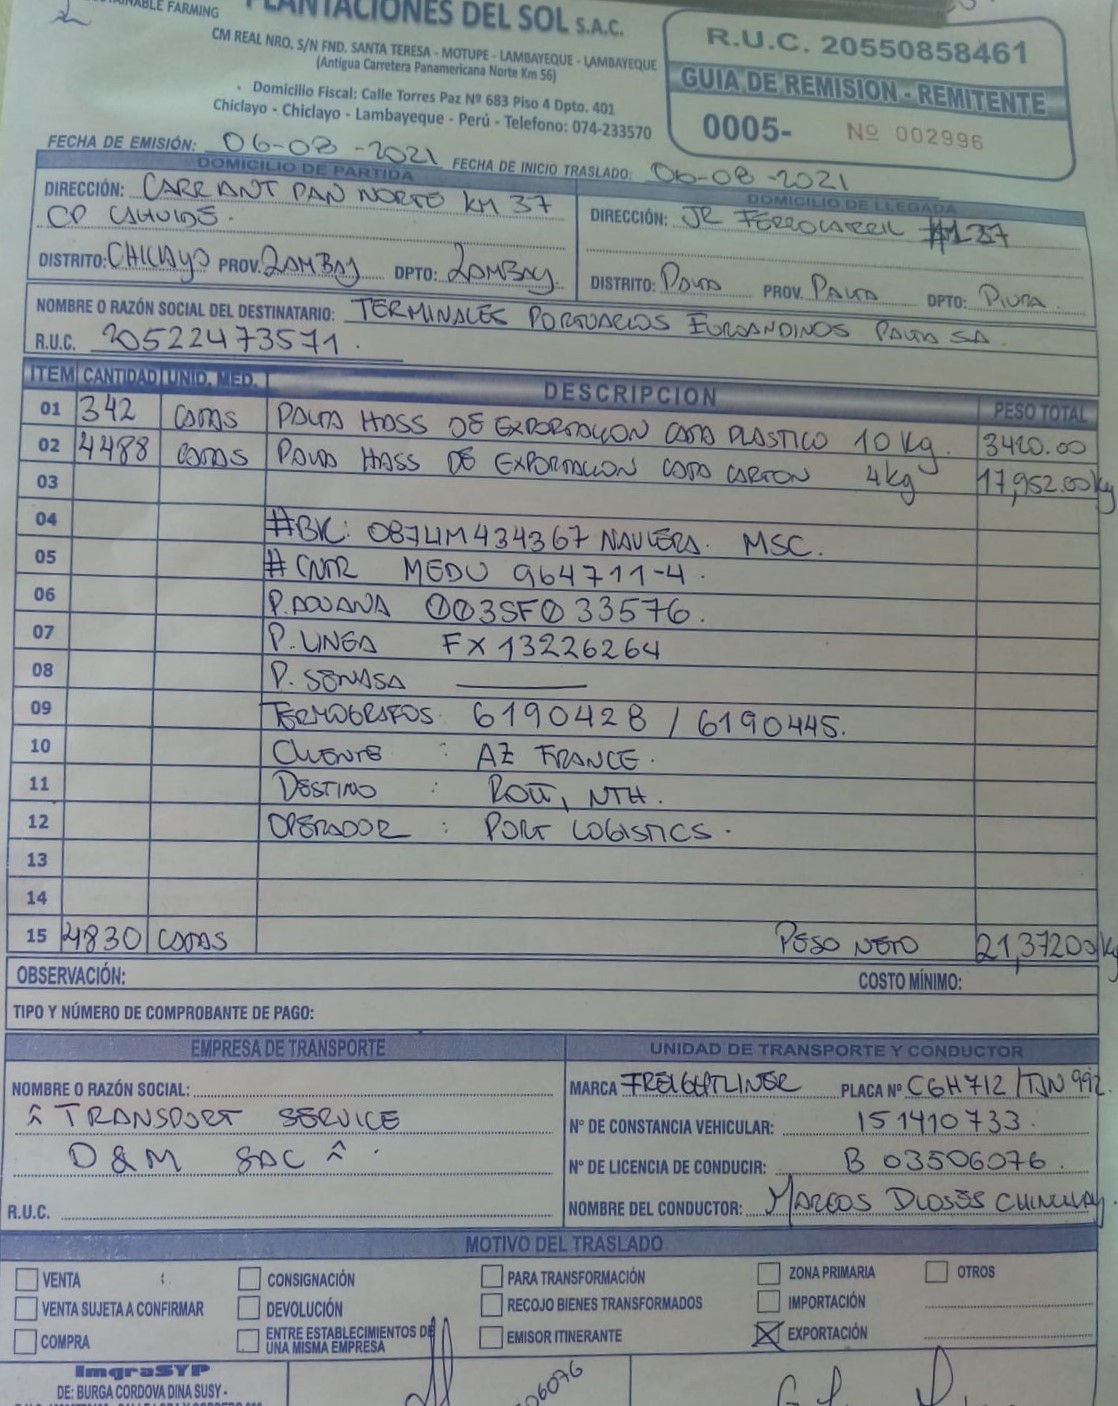 NABLE FARMING
PLANTACIONES DEL SOL S.A.C.
CM REAL NRO. S/N FND. SANTA TERESA - MOTUPE - LAMBAYEQUE - LAMBAYEQUE
(Antigua Carretera Panamericana Norte Km 56)
Domicilio Fiscal: Calle Torres Paz Nº 683 Piso 4 Dpto. 401
Chiclayo - Chiclayo - Lambayeque - Perú - Telefono: 074-233570
R.U.C. 20550858461
GUIA DE REMISION - REMITENTE
0005- Nº 002996
FECHA DE EMISIÓN: 06-08-2021 FECHA DE INICIO TRASLADO: 06-08-2021
DOMICILIO DE PARTIDA
DIRECCIÓN: CARR ANT PAN NORTE KM 37
CP CAHUIDE.
DISTRITO: CHICLAYO PROV. LAMBAY DPTO: LAMBAY.
DOMICILIO DE LLEGADA
DIRECCIÓN: JR FERROCARRIL #127
DISTRITO: PAITA PROV. PAITA DPTO: PIURA.
NOMBRE O RAZÓN SOCIAL DEL DESTINATARIO: TERMINALES PORTUARIOS EUROANDINOS PAITA SA.
R.U.C. 20522473571.
ITEM CANTIDAD UNID. MED. DESCRIPCION PESO TOTAL
01 342 CAJAS PALTA HASS DE EXPORTACION CAJA PLASTICO 10 Kg. 3420.00
02 4488 CAJAS PALTA HASS DE EXPORTACION CAJA CARTON 4kg 17,952.00 kg
03
04 #BK: 087LIM434367 NAVIERA. MSC.
05 # CNTR MEDU 964711-4.
06 P. ADUANA 003SF033576.
07 P. LINEA FX13226264
08 P. SENASA
09 TERMOGRAFOS. 6190428 / 6190445.
10 CLIENTE : AZ FRANCE.
11 DESTINO : ROTT, NTH.
12 OPERADOR : PORT LOGISTICS.
13
14
15 4830 CAJAS PESO NETO 21,372.00 kg
OBSERVACIÓN: COSTO MÍNIMO:
TIPO Y NÚMERO DE COMPROBANTE DE PAGO:
EMPRESA DE TRANSPORTE
NOMBRE O RAZÓN SOCIAL:
TRANSPORT SERVICE
D & M SAC
R.U.C.
UNIDAD DE TRANSPORTE Y CONDUCTOR
MARCA FREIGHTLINER PLACA Nº C6H712 / TJN 992.
Nº DE CONSTANCIA VEHICULAR: 151410733.
Nº DE LICENCIA DE CONDUCIR: B 03506076.
NOMBRE DEL CONDUCTOR: MARCOS DIOSES
MOTIVO DEL TRASLADO
VENTA CONSIGNACIÓN PARA TRANSFORMACIÓN ZONA PRIMARIA OTROS
VENTA SUJETA A CONFIRMAR DEVOLUCIÓN RECOJO BIENES TRANSFORMADOS IMPORTACIÓN
COMPRA ENTRE ESTABLECIMIENTOS DE UNA MISMA EMPRESA EMISOR ITINERANTE EXPORTACIÓN
ImgraSYP
DE: BURGA CORDOVA DINA SUSY -